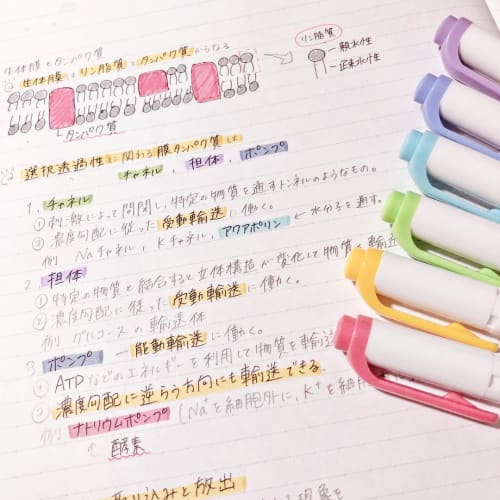 生体膜とタンパク質
生体膜はリン脂質とタンパク質からなる
リン脂質
親水性
疎水性
タンパク質
選択透過性に関わる膜タンパク質は
チャネル , 担体 , ポンプ
1. チャネル
① 刺激によって開閉し、特定の物質を通すトンネルのようなもの。
② 濃度勾配に従った受動輸送に働く。
例 Naチャネル , Kチャネル , アクアポリン ← 水分子を通す。
2. 担体
① 特定の物質と結合すると立体構造が変化して物質を輸送
② 濃度勾配に従った受動輸送に働く。
例 グルコースの輸送体
3. ポンプ — 能動輸送に働く。
① ATPなどのエネルギーを利用して物質を輸送
② 濃度勾配に逆らう方向にも輸送できる.
例 ナトリウムポンプ (Na⁺を細胞外に, K⁺を細胞
↑ 酵素
り込みと放出
現象を